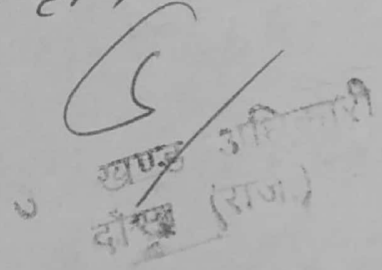 खण्ड अधिकारी
दौसा (राज.)